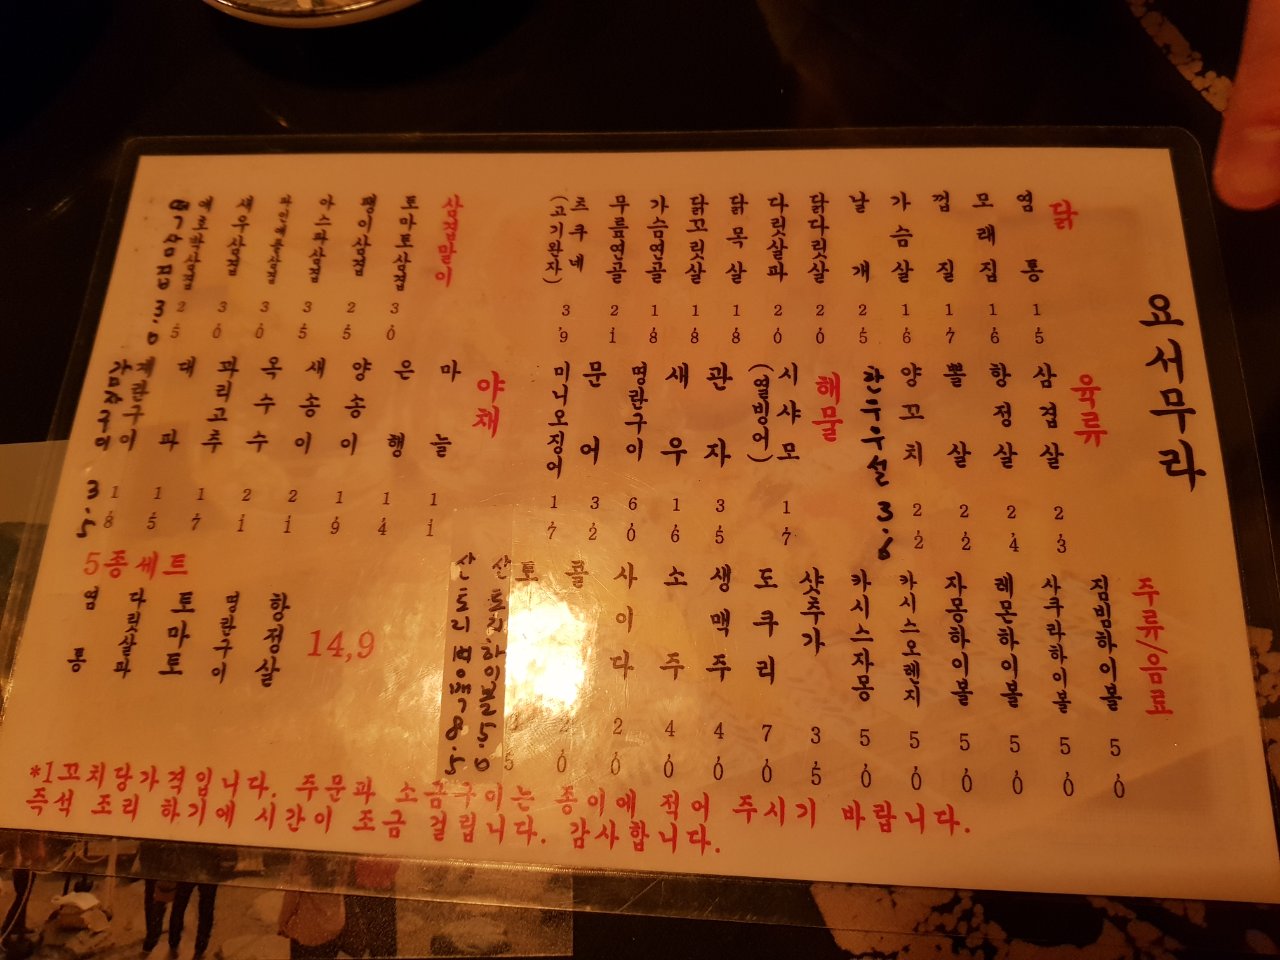 요서무라
닭
염통 1,5
모래집 1,6
껍질 1,7
가슴살 1,6
날개 2,5
닭다릿살 2,0
다릿살파 2,0
닭목살 1,8
닭꼬릿살 1,8
가슴연골 1,8
무릎연골 2,1
츠쿠네 (고기완자) 3,9
삼겹말이
토마토삼겹 3,0
팽이삼겹 2,5
아스파삼겹 3,5
파인애플삼겹 3,0
새우삼겹 3,0
2,5
3.0
육류
삼겹살 2,3
항정살 2,4
뽈살 2,2
양꼬치 2,2
한우우설 3.6
해물
시샤모 (열빙어) 1,7
관자 3,5
새우 1,6
명란구이 6,0
문어 3,2
미니오징어 1,7
야채
마늘 1,1
은행 1,4
양송이 1,9
새송이 2,1
옥수수 2,1
꽈리고추 1,7
대파 1,5
계란구이 1,8
감자구이 3.5
주류/음료
짐빔하이볼 5,0
사쿠라하이볼 5,0
레몬하이볼 5,0
자몽하이볼 5,0
카시스오렌지 5,0
카시스자몽 5,0
샷추가 3,5
도쿠리 7,0
생맥주 4,0
소주 4,0
사이다 2,0
콜
토
산토리하이볼 5.0
산토리 8.5
5종세트
항정살
명란구이
토마토
다릿살파
염통
14,9
*1꼬치당가격입니다. 주문과 소금구이는 종이에 적어 주시기 바랍니다.
즉석 조리 하기에 시간이 조금 걸립니다. 감사합니다.